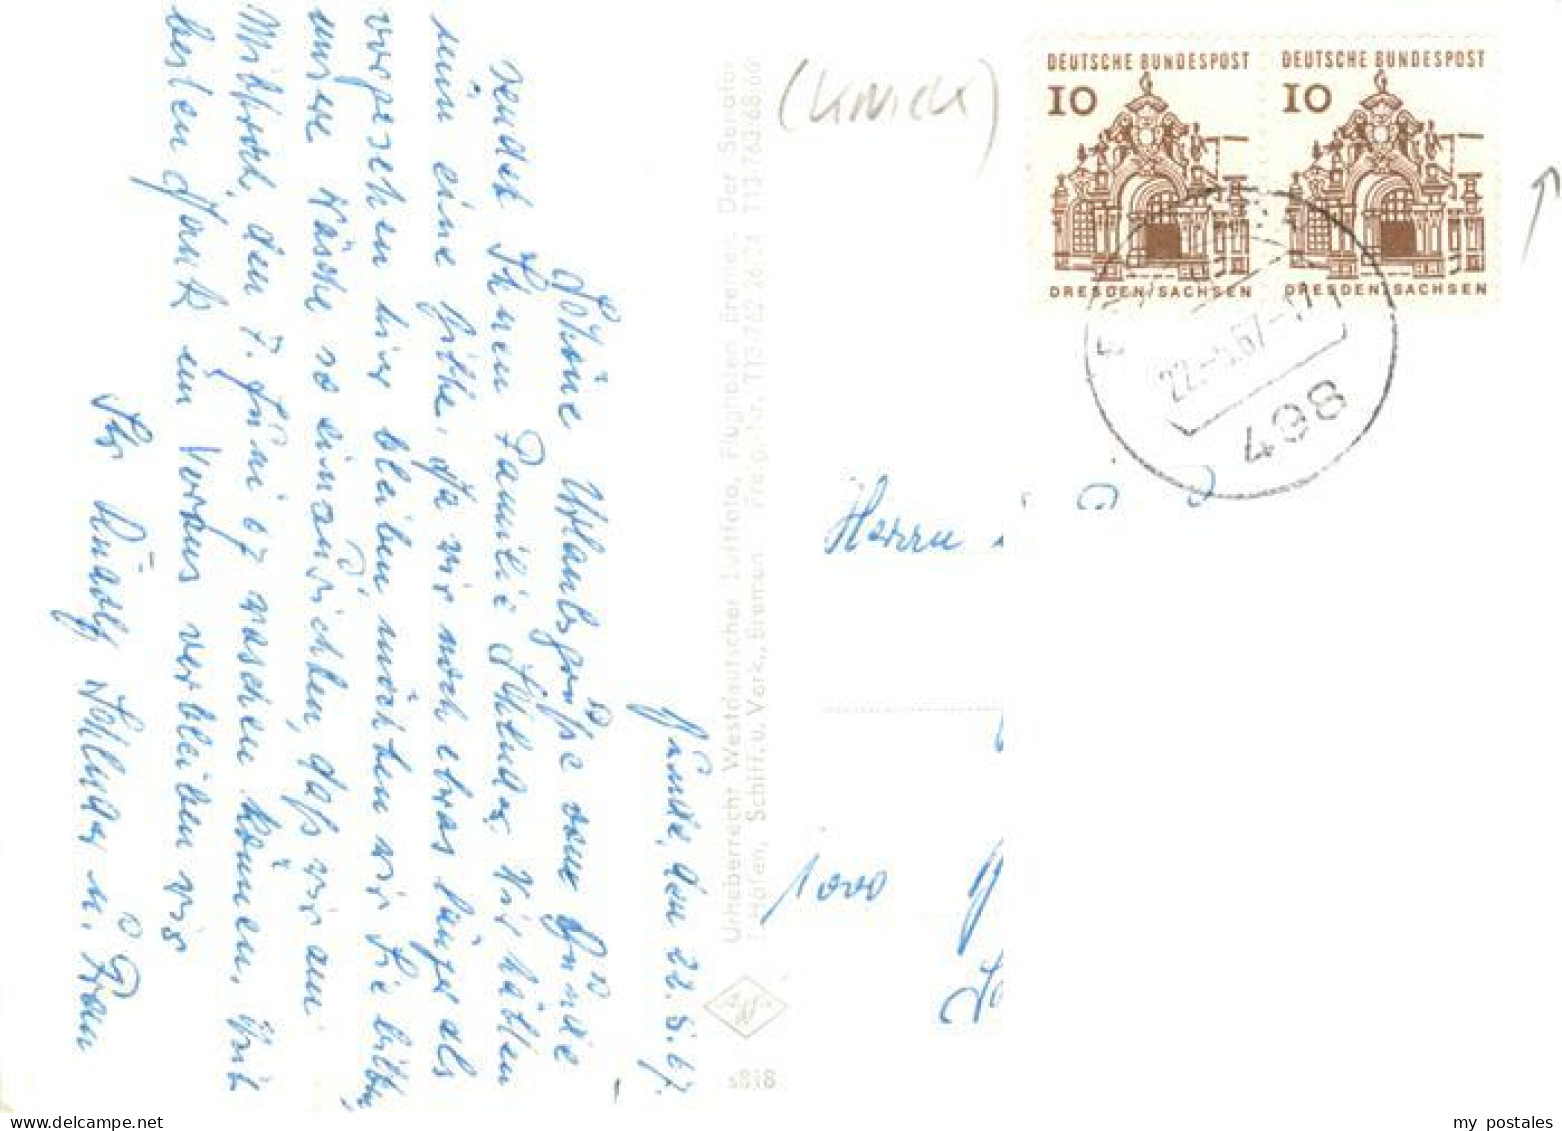 Bünde, den 22.5.67.
Schöne Urlaubsgrüße aus Bünde
sendet Ihnen Familie Wir hätten
nun eine Bitte. Da wir noch etwas länger als
vorgesehen hier bleiben möchten wir Sie bitten,
unsere Wäsche so einzurichten, daß wir am
Mittwoch, den 7. Juni 67 waschen können. Mit
besten Dank im Voraus verbleiben wir
Ihr Rudolf u. Frau
Urheberrecht Westdeutscher Luftfoto, Flughafen Bremen, Der Senator
f. Häfen, Schiff. u. Verk., Bremen Freig.-Nr. T13-762 26/74 T13-763/68/66
s818
(KNICK)
DEUTSCHE BUNDESPOST
10
DRESDEN/SACHSEN
DEUTSCHE BUNDESPOST
10
DRESDEN/SACHSEN
22.-5.67-17
498
Herrn
1000
my postales